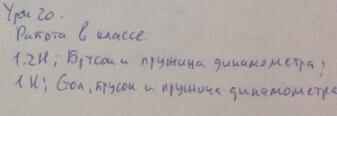 Урок 20.
Работа в классе
1.2Н; Брусок и пружина динамометра;
1Н; Стол, брусок и пружина динамометра